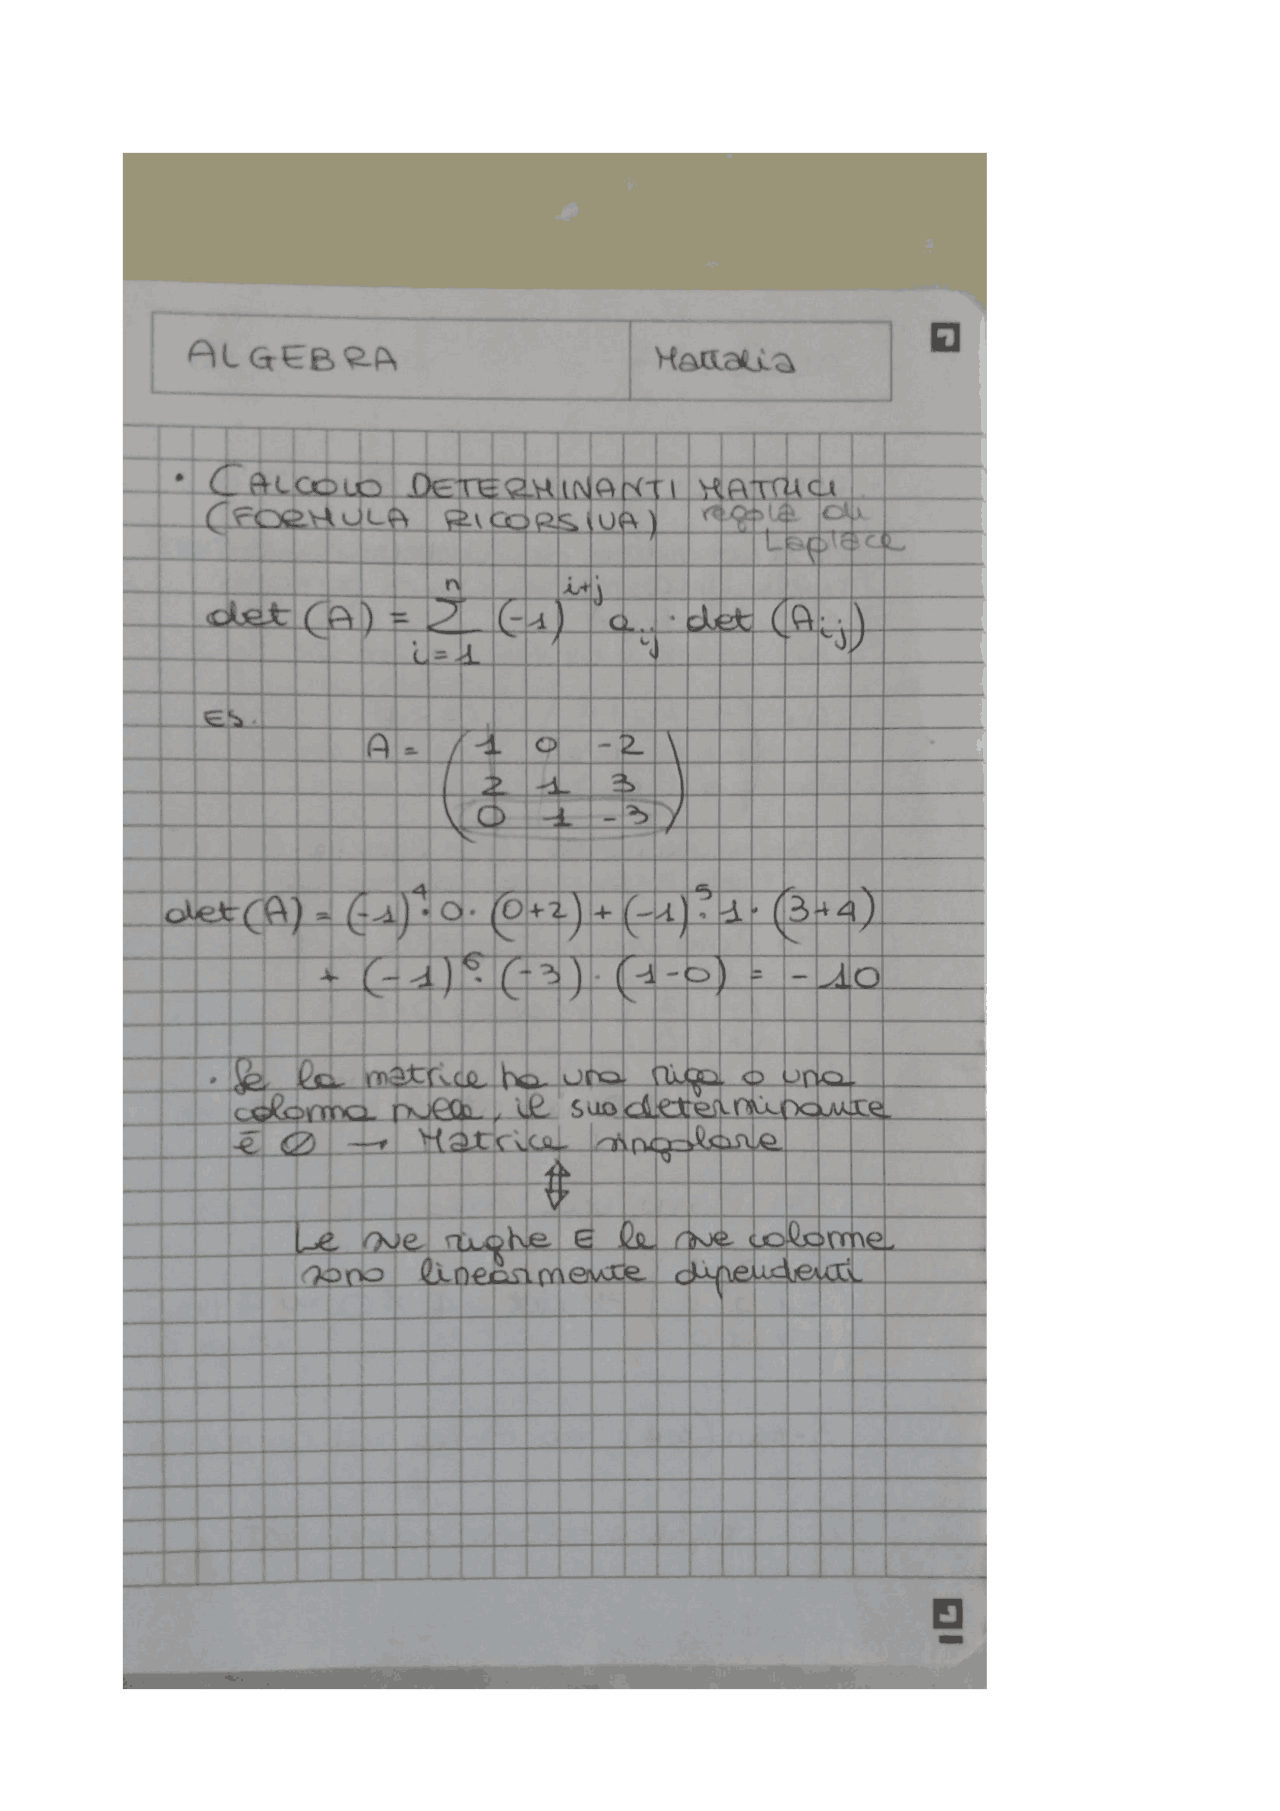 ALGEBRA
Mattalia
• CALCOLO DETERMINANTI MATRICI
(FORMULA RICORSIVA) regola di
Laplace
det (A) = n∑i=1 (-1)^{i+j} a_{ij} · det (A_{ij})
ES.
A = ( 1 0 -2
2 1 3
0 1 -3 )
det(A) = (-1)^4 · 0 · (0+2) + (-1)^5 · 1 · (3+4)
+ (-1)^6 · (-3) · (1-0) = -10
• Se la matrice ha una riga o una
colonna nulla, il suo determinante
è 0 → Matrice singolare
⇕
Le sue righe E le sue colonne
sono linearmente dipendenti